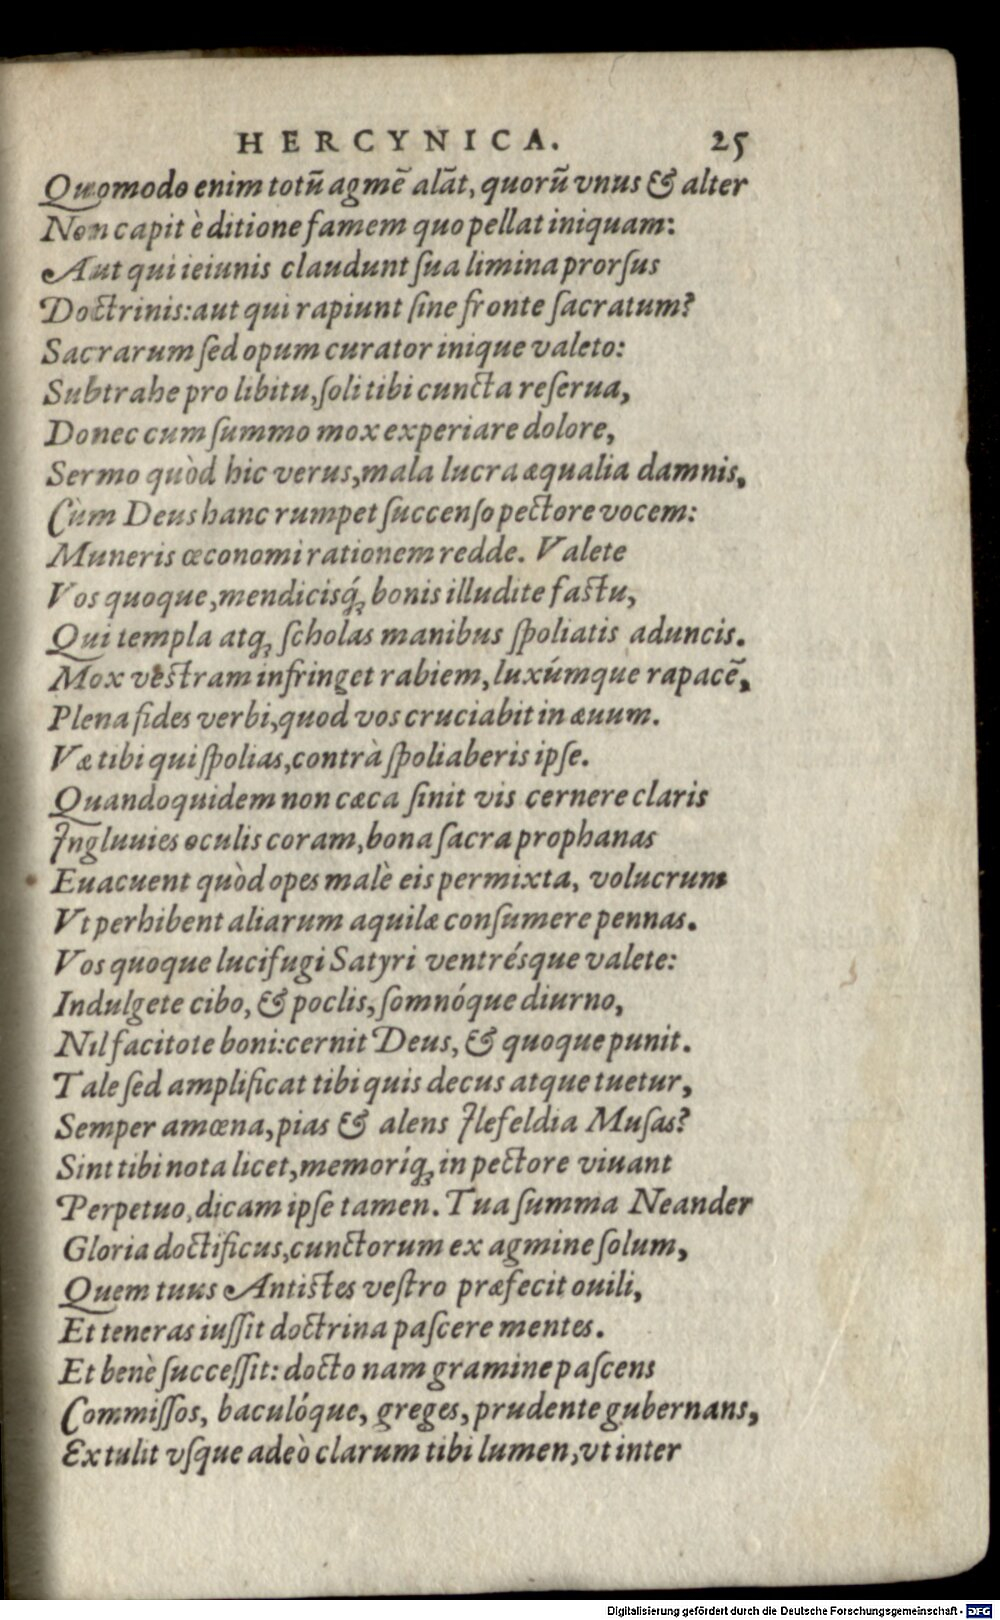 HERCYNICA. 25
Quomodo enim totū agmē alāt, quorū vnus & alter
Non capit è ditione famem quo pellat iniquam:
Aut qui ieiunis claudunt sua limina prorsus
Doctrinis: aut qui rapiunt sine fronte sacratum?
Sacrarum sed opum curator inique valeto:
Subtrahe pro libitu, soli tibi cuncta reserua,
Donec cum summo mox experiare dolore,
Sermo quòd hic verus, mala lucra æqualia damnis,
Cùm Deus hanc rumpet succenso pectore vocem:
Muneris œconomi rationem redde. Valete
Vos quoque, mendicisq́; bonis illudite fastu,
Qui templa atq; scholas manibus spoliatis aduncis.
Mox vestram infringet rabiem, luxúmque rapacē,
Plena fides verbi, quod vos cruciabit in æuum.
Væ tibi qui spolias, contrà spoliaberis ipse.
Quandoquidem non cæca sinit vis cernere claris
Ingluuies oculis coram, bona sacra prophanas
Euacuent quòd opes malè eis permixta, volucrum
Vt perhibent aliarum aquilæ consumere pennas.
Vos quoque lucifugi Satyri ventrésque valete:
Indulgete cibo, & poclis, somnóque diurno,
Nil facitote boni: cernit Deus, & quoque punit.
Tale sed amplificat tibi quis decus atque tuetur,
Semper amœna, pias & alens Ilefeldia Musas?
Sint tibi nota licet, memoríq; in pectore viuant
Perpetuo, dicam ipse tamen. Tua summa Neander
Gloria doctificus, cunctorum ex agmine solum,
Quem tuus Antistes vestro præfecit ouili,
Et teneras iussit doctrina pascere mentes.
Et benè successit: docto nam gramine pascens
Commissos, baculóque, greges, prudente gubernans,
Extulit vsque adeò clarum tibi lumen, vt inter
Digitalisierung gefördert durch die Deutsche Forschungsgemeinschaft - DFG